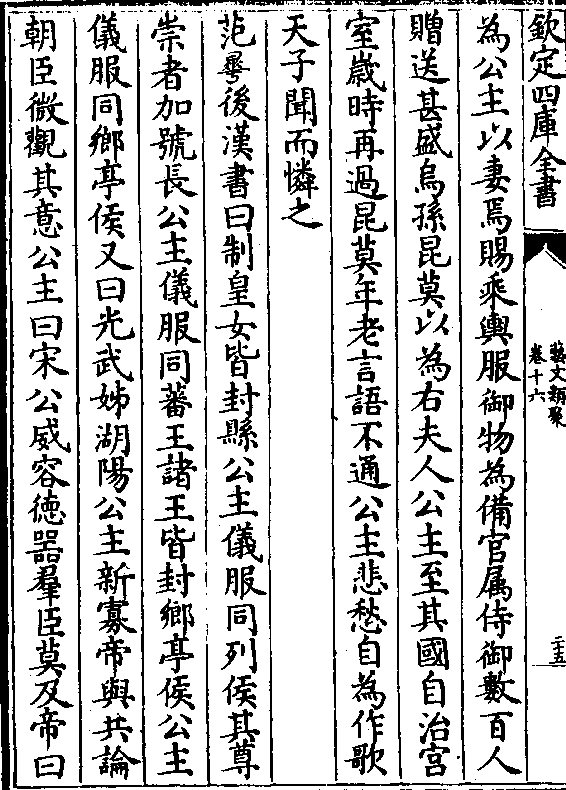 欽定四庫全書
藝文類聚
卷十六
二五
為公主以妻焉賜乗輿服御物為備官属侍御數百人
贈送甚盛烏孫昆莫以為右夫人公主至其國自治宫
室歳時再過昆莫年老言語不通公主悲愁自為作歌
天子聞而憐之
范曅後漢書曰制皇女皆封縣公主儀服同列侯其尊
崇者加號長公主儀服同蕃王諸王皆封鄉亭侯公主
儀服同鄉亭侯又曰光武姊湖陽公主新寡帝與共論
朝臣微觀其意公主曰宋公威容徳器羣臣莫及帝曰